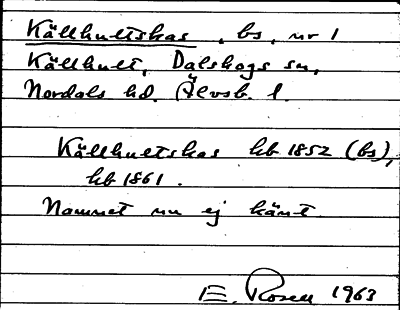 Källhultskas, bs, nr 1
Källhult, Dalskogs sn,
Nordals hd. Älvsb. l.
Källhultskas hb 1852 (bs),
hb 1861.
Namnet nu ej känt
E. Rosell 1963